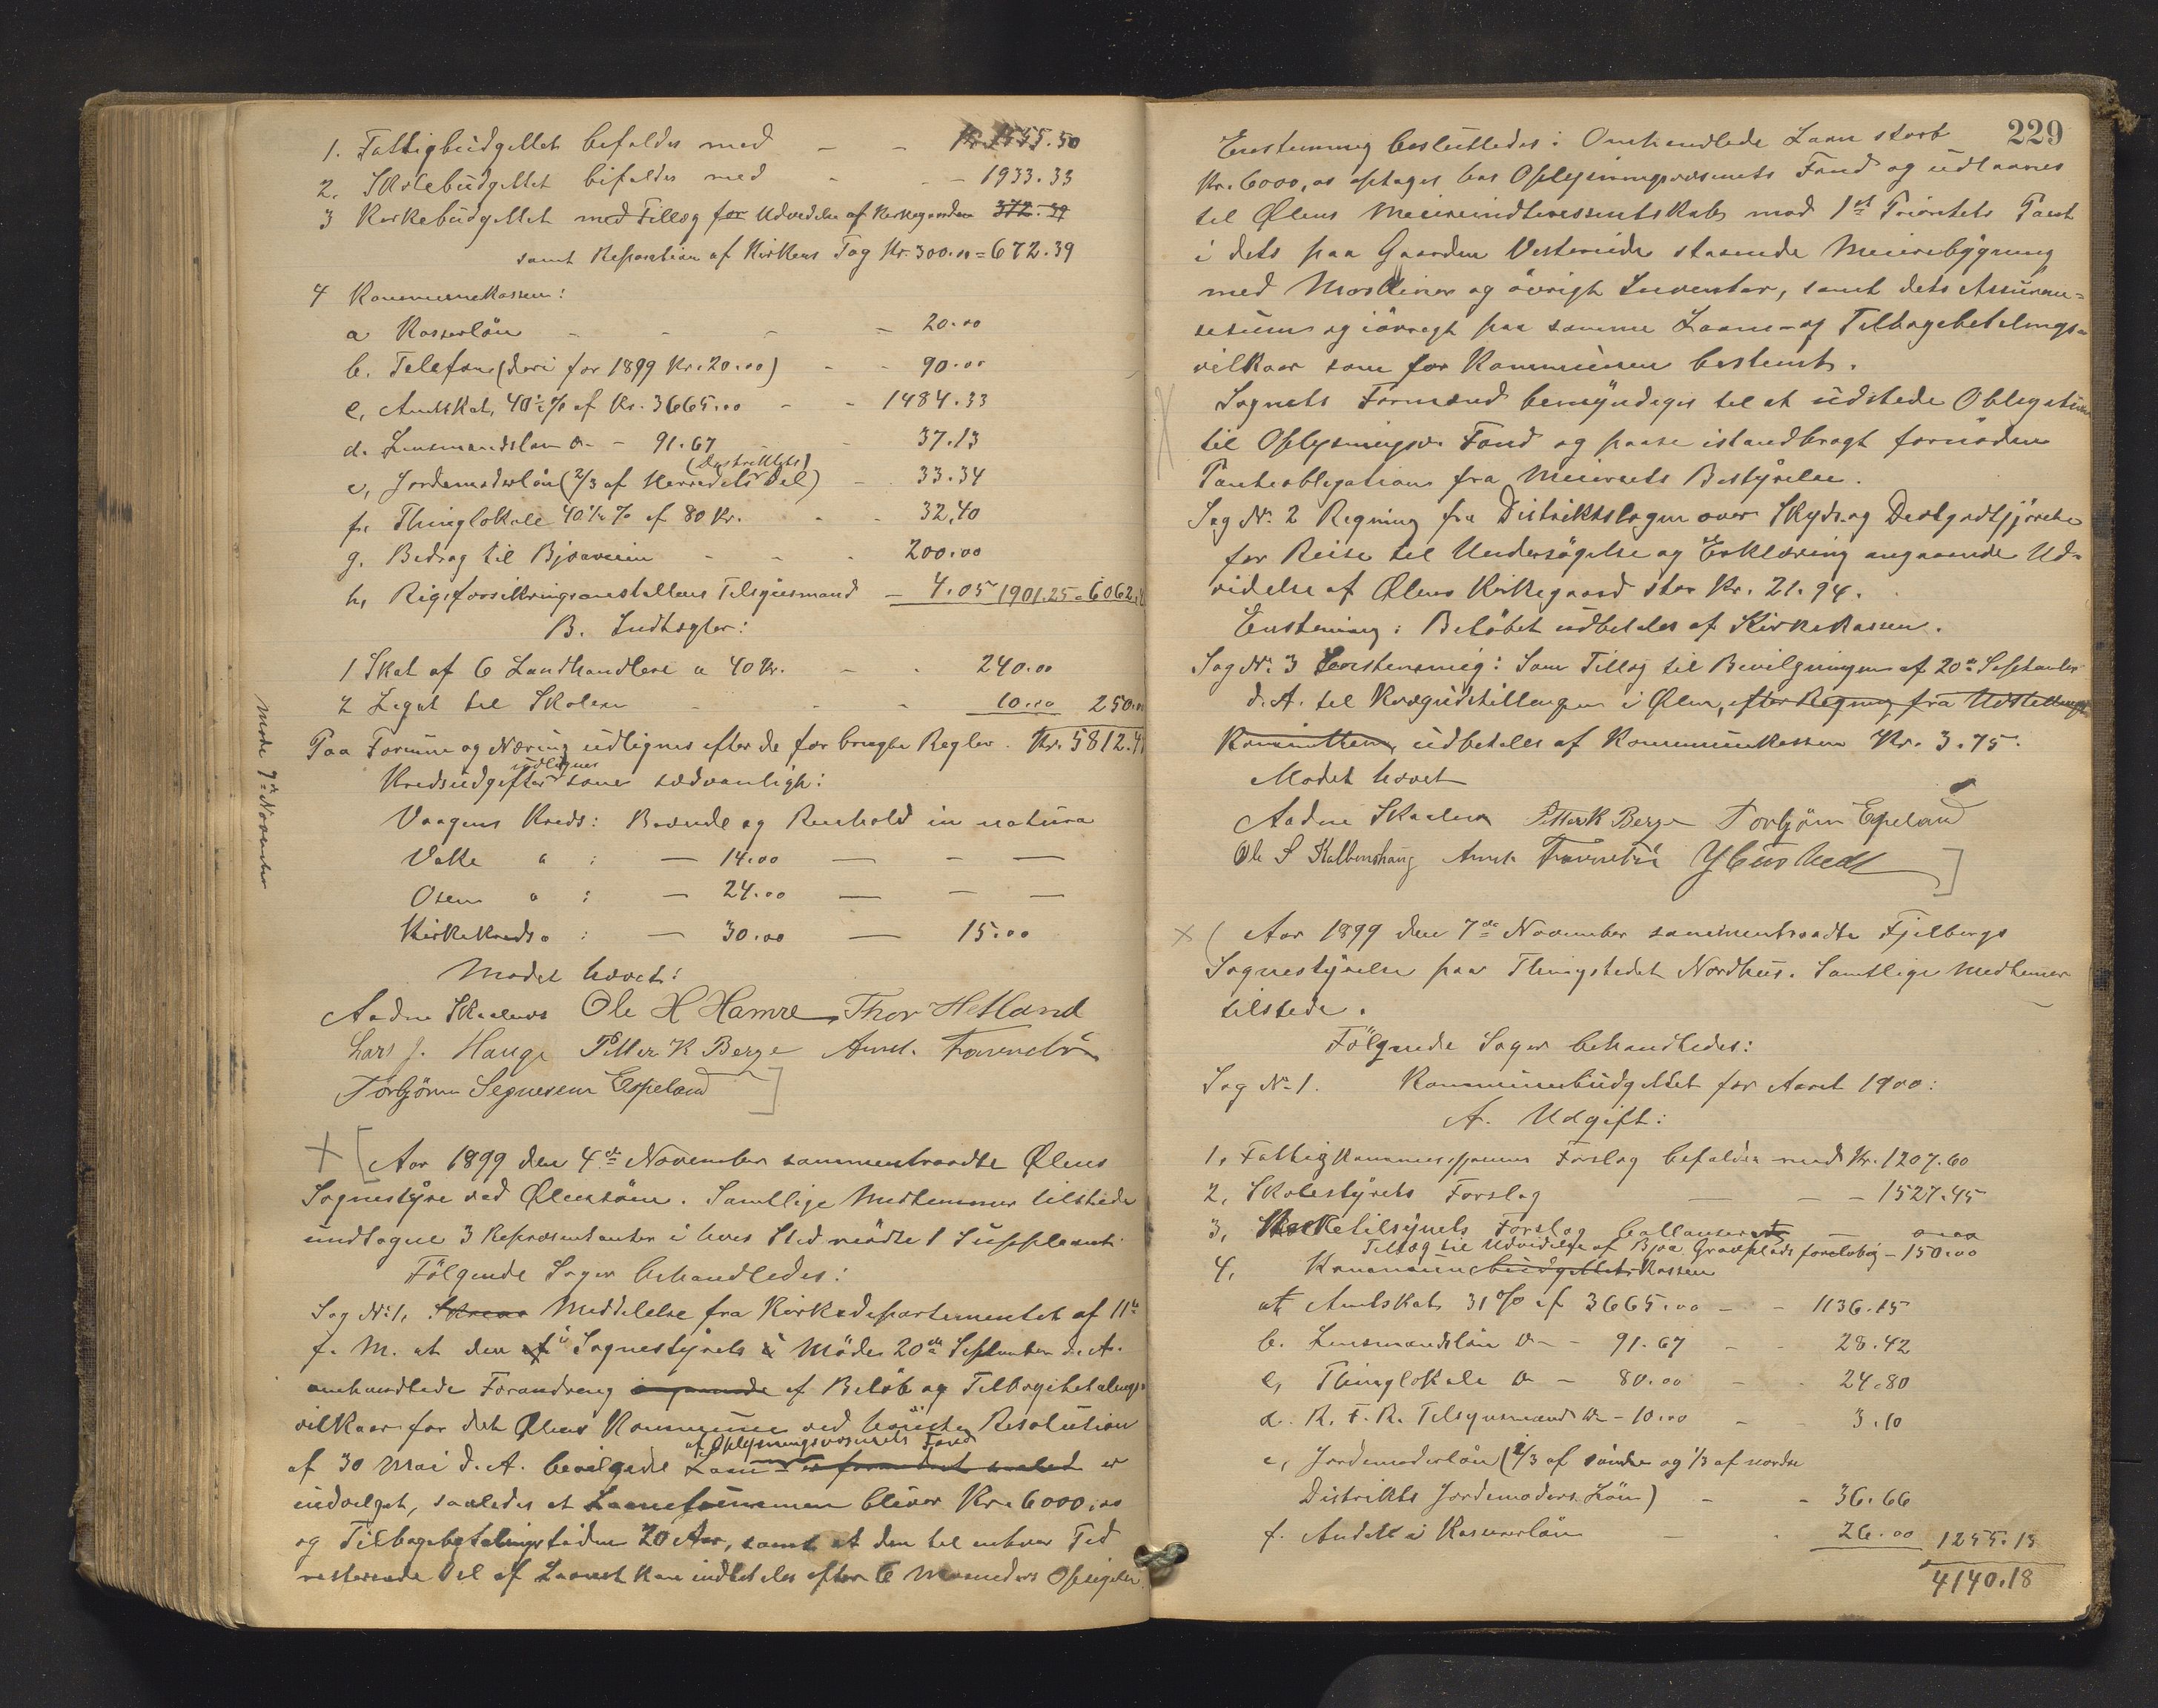 1. Fattigbudgettet befaldes med - - Kr. 1555.50
2. Skolebudgettet bifaldes med - - 1933.33
3 Kirkebudgettet med Tillæg for Udvidelse af Kirkegaarden 372.39
samt Reparation af Kirkens Tag Kr. 300.00 = 672.39
4 Kommunekassen:
a Kasserløn - - - - 20.00
b. Telefon (deri for 1899 Kr. 20.00) - - 90.00
c, Amtskat, 40½% af Kr. 3665.00 - - 1484.33
d. Lensmandsløn do - 91.67 - - 37.13
(Distriktets)
e, Jordemoderløn (2/3 af Herredets Del) - 33.34
f. Thinglokale 40½% af 80 Kr. - - 32,40
g. Bidrag til Bjoaveien - - - 200.00
h, Rigsforsikringsanstaltens Tilsynsmand - 4.05 1901.25 = 6062.
B. Indtægter:
1 Skat af 6 Landhandlere a 40 Kr. - - 240.00
2 Legat til Skolen - - - 10.00 250.00
Paa Formue og Næring udlignes efter de før brugte Regler. Kr. 5812.4
udlignes
Kredsudgifter som sædvanligt:
Vaagens Kreds: Brænde og Renhold in natura
Valle " : — 14.00 — — —
Osen " : — 24.00 — — —
Kirkekreds " : — 30.00 — 15.00
Mødet hævet!
Aadne Skaalnes Ole H Hamre Thor Hetland
Lars J. Hauge Petter K Berge Amt. Tveranebø
Torbjørn Segnesen Espeland ]
Møde 7de November
+ [ Aar 1899 den 4de November sammentraadte Ølens
Sognestyre ved Ølensøen. Samtlige Medlemmer tilstede
undtagne 3 Repræsentanter i hvis Sted mødte 1 Suppleant.
Følgende Sager behandledes:
Sag No 1, Meddelelse fra Kirkedepartementet af 11te
f. M. at den af i Sognestyrets i Møde 20de September d. A.
omhandlede Forandring angaaende af Beløb og Tilbagebetalings-
vilkaar for det Ølens Kommune ved høieste Resolution
af Oplysningsvæsenets Fond
af 30 Mai d. A. bevilgede Laan er forandret saaled er
indvilget, saaledes at Laanesummen bliver Kr. 6000.00
og Tilbagebetalingstiden 20 Aar, samt at den til enhver Tid
resterende Del af Laanet kan indbetales efter 6 Maaneders Opsigelse
229
Enstemmig besluttedes: Omhandlede Laan stort
Kr. 6000,00 optages hos Oplysningsvæsenets Fond og udlaanes
til Ølens Meieriinteressentskab mod 1ste Prioritets Pant
i dets paa Gaarden Vestreide staaende Meieribygning
med Maskiner og øvrigt Inventar, samt dets Assuran-
sesum og iøvrigt paa samme Laane- og Tilbagebetalings-
vilkaar som for Kommunen bestemt.
Sognets Formand bemyndiges til at udstede Obligation
til Oplysningsv. Fond og paase istandbragt fornøden
Panteobligation fra Meieriets Bestyrelse.
Sag No. 2 Regning fra Distriktslægen over Skyds og Diætgodtgjørelse
for Reise til Undersøgelse og Erklæring angaaende Ud-
videlse af Ølens Kirkegaard stor Kr. 21.94.
Enstemmig: Beløbet udbetales af Kirkekassen.
Sag No. 3 Enstemmig: Som Tillæg til Bevilgningen af 20de September
d. A. til Kvægudstillingen i Ølen, efter Regning fra Udstillings
Komiteen, udbetales af Kommunekassen Kr. 3.75.
Mødet hævet
Aadne Skaalnes Petter K Berge Torbjørn Espeland
Ole S Kalbenshaug Amt. Tveranebø
]
× ( Aar 1899 den 7de November sammentraadte Fjelbergs
Sognestyrelse paa Thingstedet Nordhus. Samtlige Medlemmer
tilstede.
Følgende Sager behandledes:
Sag No. 1. Kommunebudgettet for Aaret 1900:
A. Udgift:
1, Fattigkommissionens Forslag bifaldes med Kr. 1207.60
2, Skolestyrets Forslag — — - 1527.45
3, Kirketilsynets Forslag ballanserer —
Tillæg til Udvidelse af Bjoa Gravplads foreløbig - 150.00
4, Kommunebudgettets Kassen
a Amtskat 31% af 3665.00 - - 1136.15
b. Lensmandsløn do - 91.67 - - 28.42
c, Thinglokale do - 80.00 - - 24.80
d. R. F. A. Tilsynsmand do - 10.00 - 3.10
e, Jordemoderløn (1/3 af søndre og 1/3 af nordre
Distrikts Jordemoders Løn) - - 36.66
f. Andel i Kasserløn - - 26.00 1255.13
4140.18